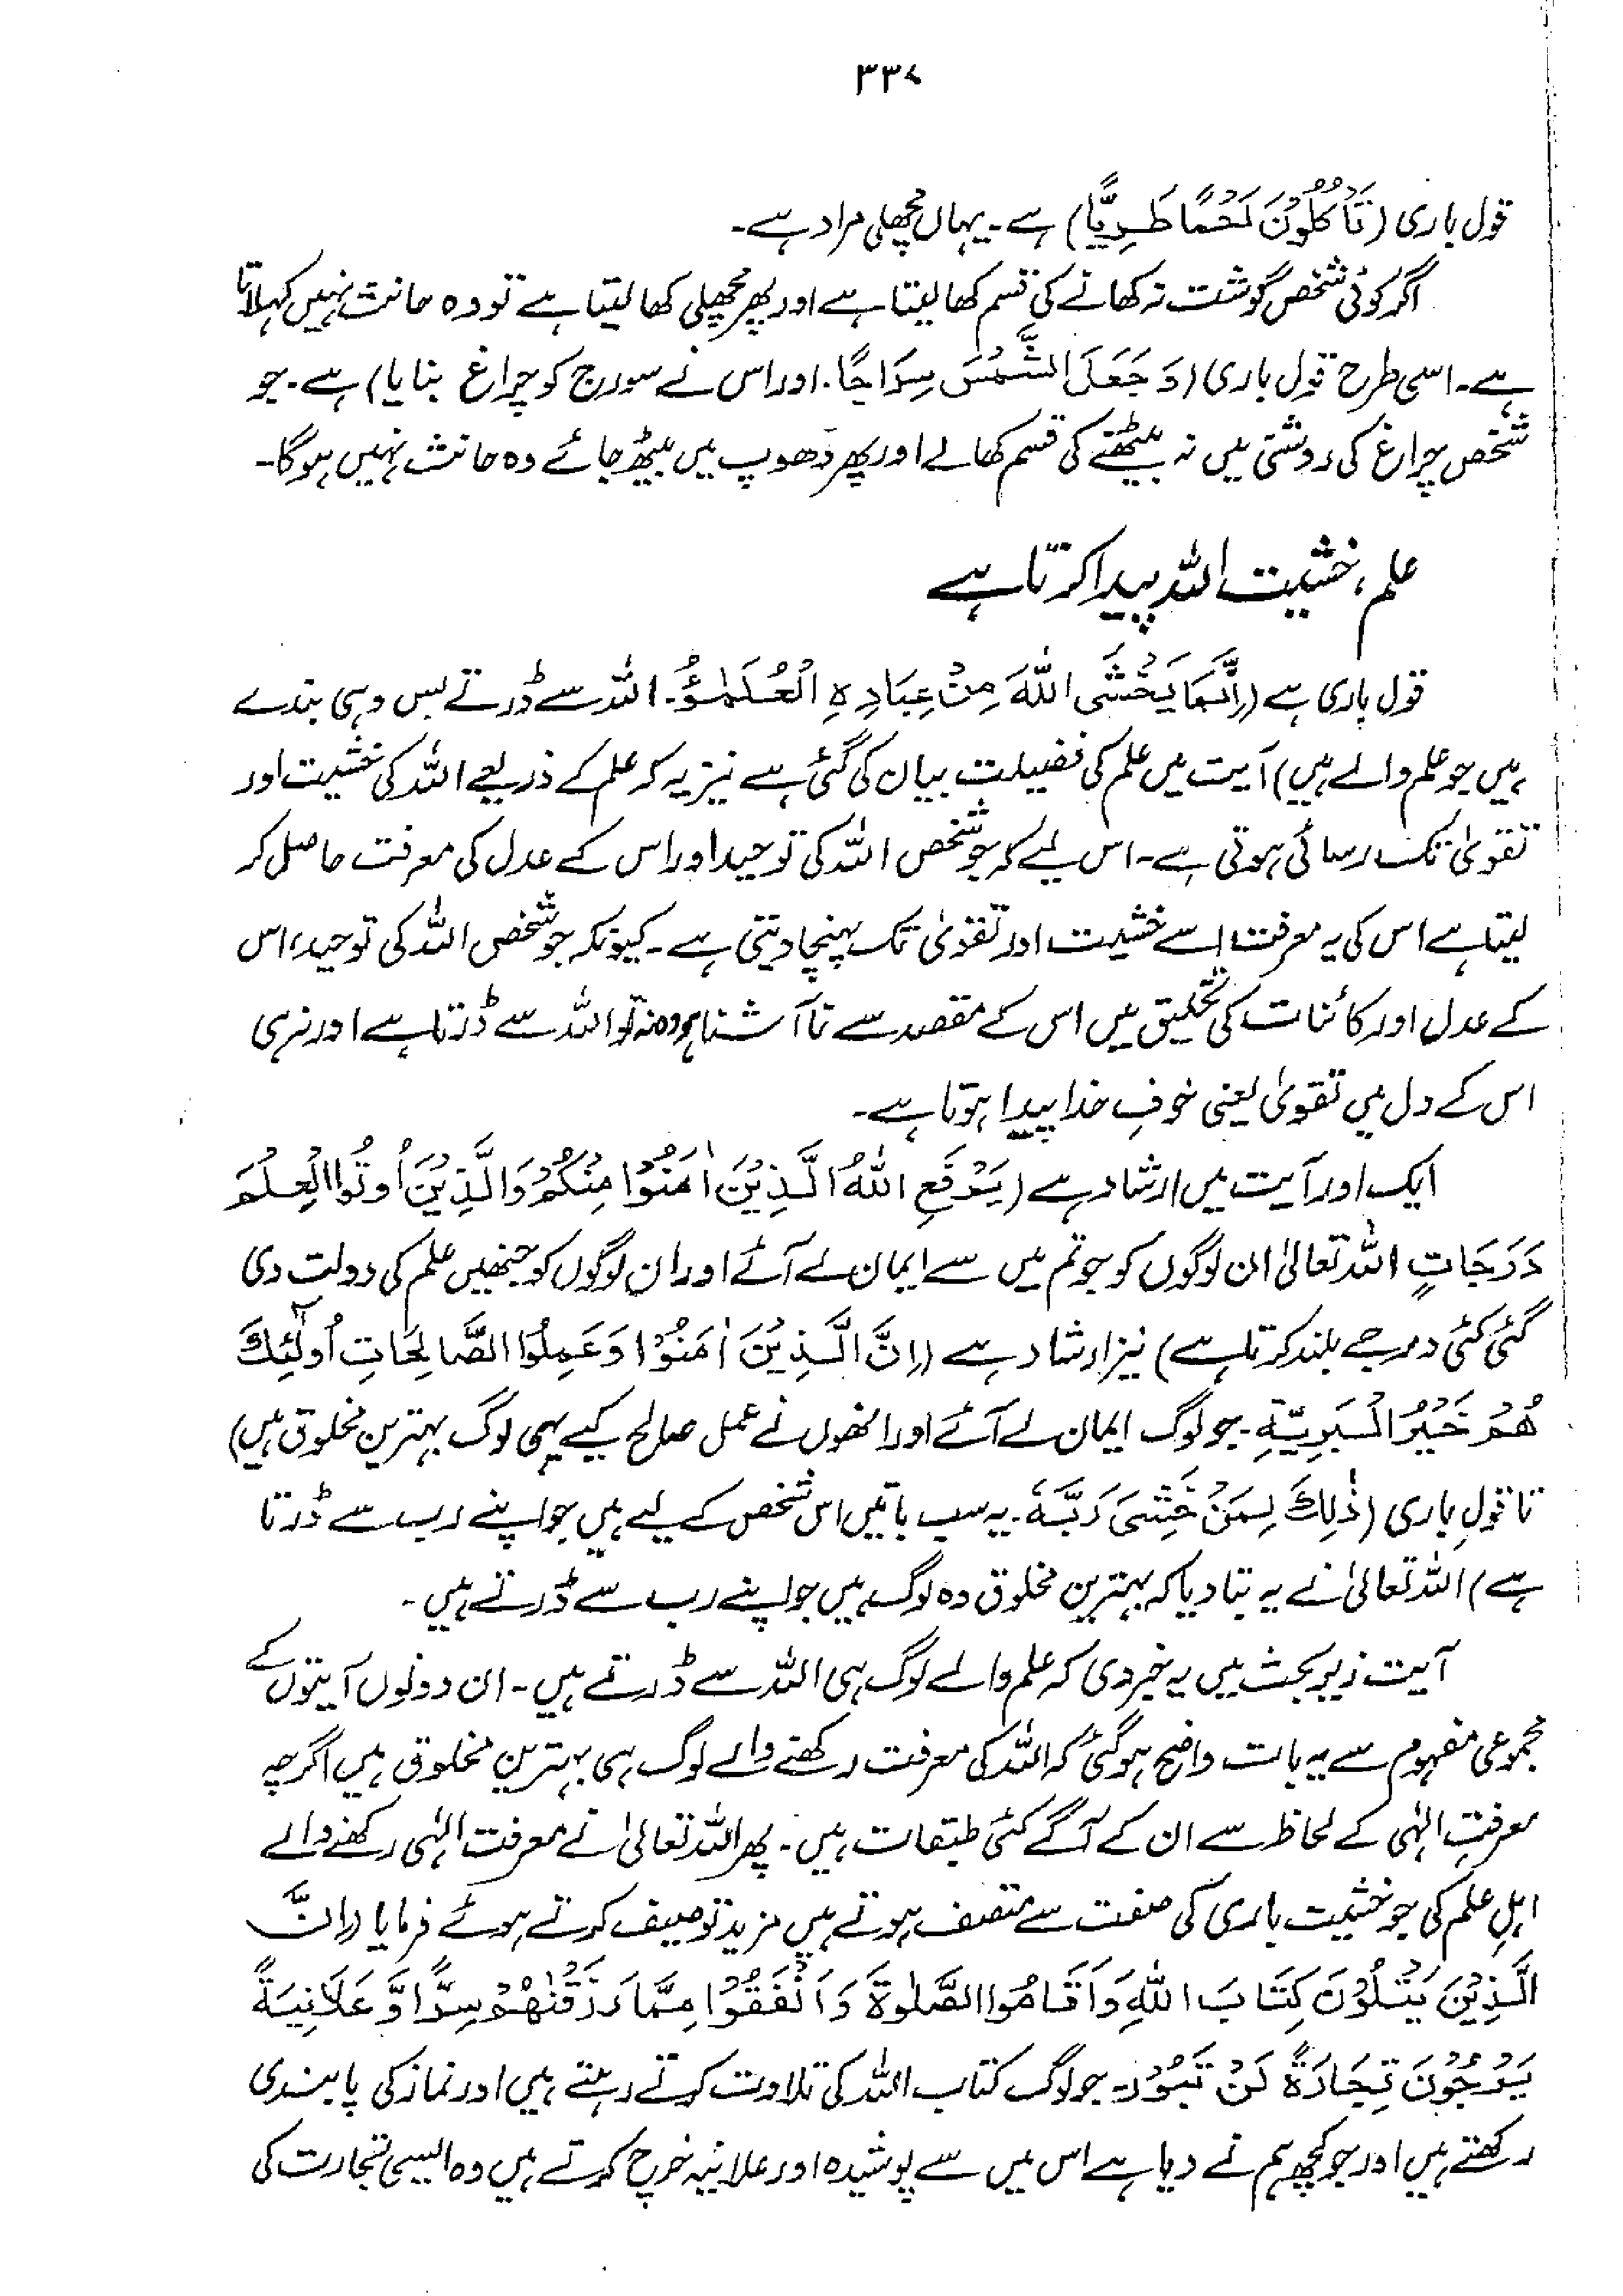 ۳۳۷
قول باری (تَأْكُلُوْنَ لَحْمًا طَرِيًّا) ہے۔ یہاں مچھلی مراد ہے۔
اگر کوئی شخص گوشت نہ کھانے کی قسم کھا لیتا ہے اور پھر مچھلی کھا لیتا ہے تو وہ حانث نہیں کہلاتا
ہے۔ اسی طرح قول باری (وَجَعَلَ الشَّمْسَ سِرَاجًا۔ اور اس نے سورج کو چراغ بنایا) ہے۔ جو
شخص چراغ کی روشنی میں نہ بیٹھنے کی قسم کھالے اور پھر دھوپ میں بیٹھ جائے وہ حانث نہیں ہوگا۔
علم، خشیت اللہ پیدا کرتا ہے
قول باری ہے (اِنَّمَا يَخْشَى اللّٰهَ مِنْ عِبَادِهِ الْعُلَمٰؤُ۔ اللہ سے ڈرتے بس وہی بندے
ہیں جو علم والے ہیں) آیت میں علم کی فضیلت بیان کی گئی ہے نیز یہ کہ علم کے ذریعے اللہ کی خشیت اور
تقویٰ تک رسائی ہوتی ہے۔ اس لیے کہ جو شخص اللہ کی توحید اور اس کے عدل کی معرفت حاصل کر
لیتا ہے اس کی یہ معرفت اسے خشیت اور تقویٰ تک پہنچا دیتی ہے۔ کیونکہ جو شخص اللہ کی توحید، اس
کے عدل اور کائنات کی تخلیق میں اس کے مقصد سے ناآشنا ہو وہ نہ تو اللہ سے ڈرتا ہے اور نہ ہی
اس کے دل میں تقویٰ یعنی خوفِ خدا پیدا ہوتا ہے۔
ایک اور آیت میں ارشاد ہے (يَرْفَعِ اللّٰهُ الَّذِيْنَ اٰمَنُوْا مِنْكُمْ وَالَّذِيْنَ اُوتُوا الْعِلْمَ
دَرَجَاتٍ اللہ تعالیٰ ان لوگوں کو جو تم میں سے ایمان لے آئے اور ان لوگوں کو جنھیں علم کی دولت دی
گئی کئی درجے بلند کرتا ہے) نیز ارشاد ہے (اِنَّ الَّذِيْنَ اٰمَنُوْا وَعَمِلُوا الصَّالِحَاتِ اُولٰٓئِكَ
هُمْ خَيْرُ الْبَرِيَّةِ۔ جو لوگ ایمان لے آئے اور انھوں نے عمل صالح کیے یہی لوگ بہترین مخلوق ہیں)
تا قولِ باری (ذٰلِكَ لِمَنْ خَشِىَ رَبَّهٗ۔ یہ سب باتیں اس شخص کے لیے ہیں جو اپنے رب سے ڈرتا
ہے) اللہ تعالیٰ نے یہ بتا دیا کہ بہترین مخلوق وہ لوگ ہیں جو اپنے رب سے ڈرتے ہیں۔
آیت زیر بحث میں یہ خبر دی کہ علم والے لوگ ہی اللہ سے ڈرتے ہیں۔ ان دونوں آیتوں کے
مجموعی مفہوم سے یہ بات واضح ہوگئی کہ اللہ کی معرفت رکھنے والے لوگ ہی بہترین مخلوق ہیں اگرچہ
معرفتِ الٰہی کے لحاظ سے ان کے آگے کئی طبقات ہیں۔ پھر اللہ تعالیٰ نے معرفت الٰہی رکھنے والے
اہلِ علم کی جو خشیت باری کی صفت سے متصف ہوتے ہیں مزید توصیف کرتے ہوئے فرمایا (اِنَّ
الَّذِيْنَ يَتْلُوْنَ كِتَابَ اللّٰهِ وَاَقَامُوا الصَّلٰوةَ وَاَنْفَقُوْا مِمَّا رَزَقْنٰهُمْ سِرًّا وَّ عَلَانِيَةً
يَرْجُوْنَ تِجَارَةً لَنْ تَبُوْرَ۔ جو لوگ کتاب اللہ کی تلاوت کرتے رہتے ہیں اور نماز کی پابندی
رکھتے ہیں اور جو کچھ ہم نے دیا ہے اس میں سے پوشیدہ اور علانیہ خرچ کرتے ہیں وہ ایسی تجارت کی